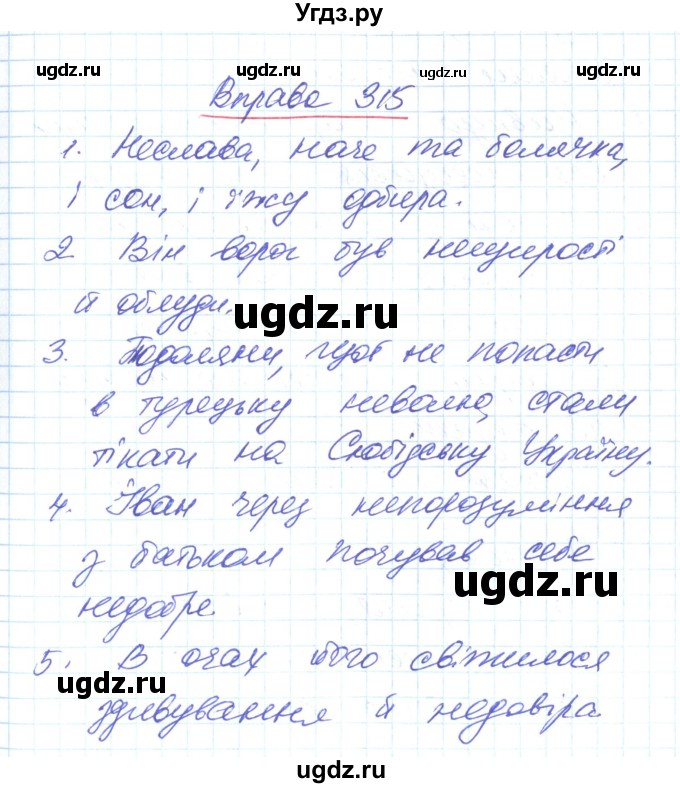 Угдз.ру
ugdz.ru ugdz.ru ugdz.ru
Вправа 315
1. Неслава, наче та болячка,
і сон, і їжу одбира.
2 Він ворог був нещирості
й облуди.
ugdz.ru
3. Подоляни, щоб не попасти
в турецьку неволю, стали
тікати на Слобідську Україну.
4. Іван через непорозуміння
з батьком почував себе
ugdz.ru
недобре.
5. В очах його світилося
ugdz.ru
здивування й недовіра.
ugdz.ru